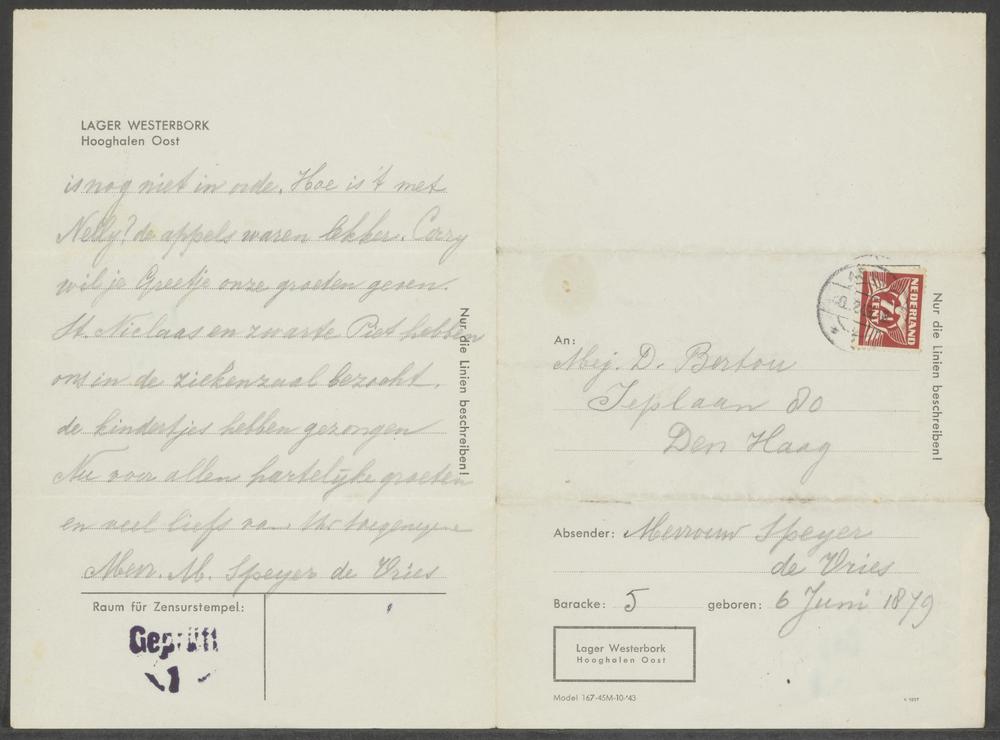 LAGER WESTERBORK
Hooghalen Oost
is nog niet in orde. Hoe is 't met
Nelly? de appels waren lekker. Corry
wil je Greetje onze groeten geven.
St. Niclaas en zwarte Piet hebben
ons in de ziekenzaal bezocht.
de kindertjes hebben gezongen
Nu voor allen hartelijke groeten
en veel liefs van Uw toegenegene
Mevr. M. Speyer de Vries
Nur die Linien beschreiben!
Raum für Zensurstempel:
Geprüft
1
NEDERLAND
7½
CENT
Nur die Linien beschreiben!
An:
Mej. D. Bertou
Ieplaan 80
Den Haag
Absender: Mevrouw Speyer
de Vries
Baracke: 5 geboren: 6 Juni 1879
Lager Westerbork
Hooghalen Oost
Model 167-45M-10-'43